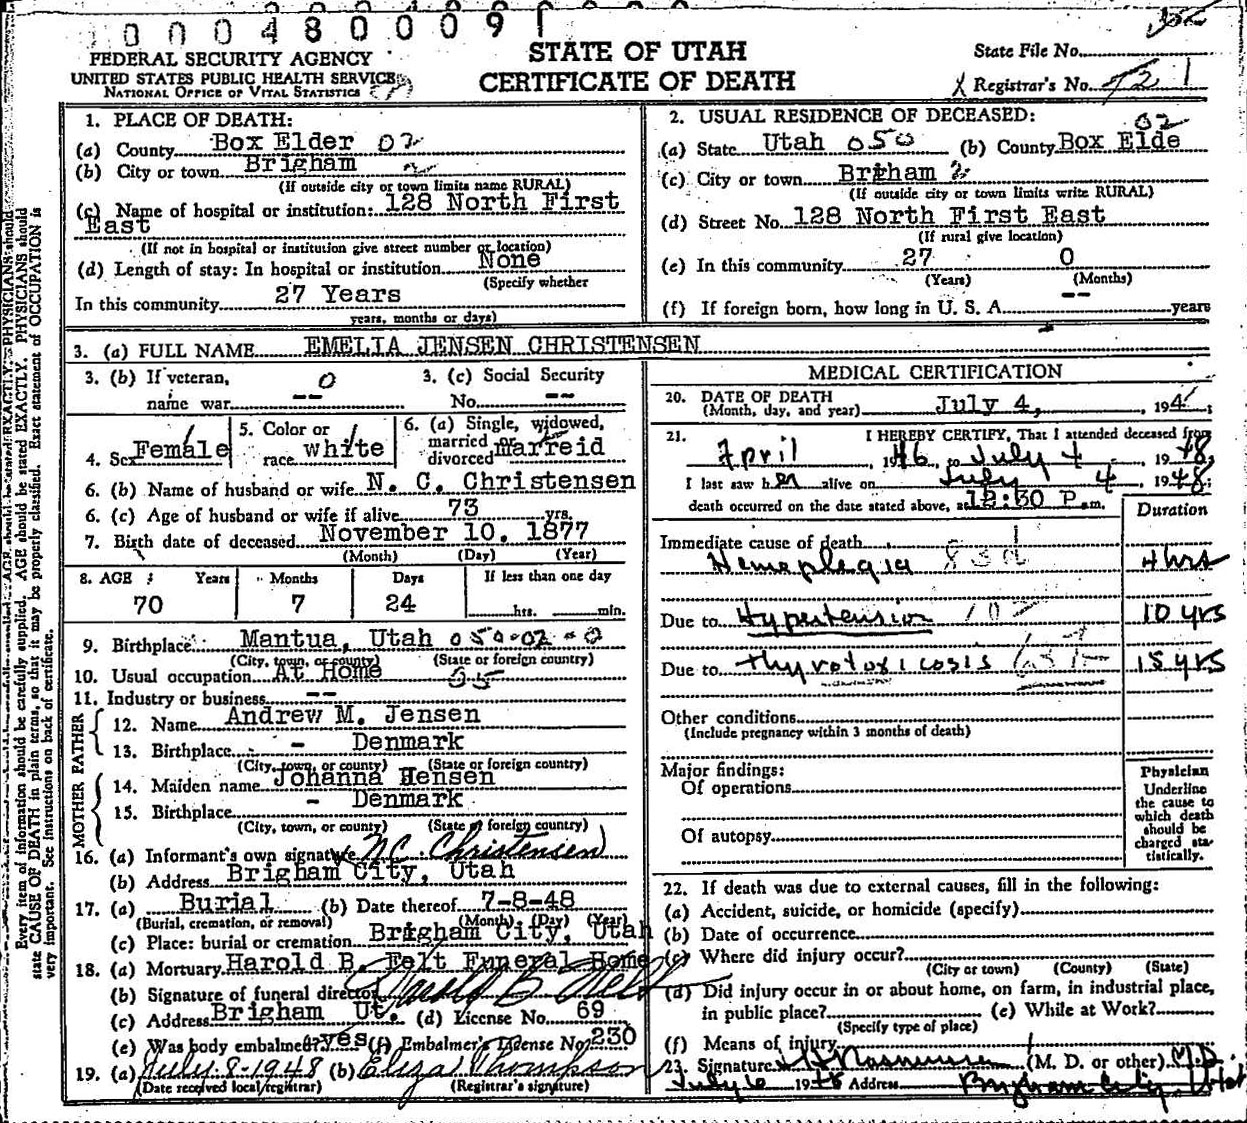 0004800091
FEDERAL SECURITY AGENCY
UNITED STATES PUBLIC HEALTH SERVICE
NATIONAL OFFICE OF VITAL STATISTICS
STATE OF UTAH
CERTIFICATE OF DEATH
State File No.
Registrar's No. 72
1. PLACE OF DEATH:
(a) County Box Elder 02
(b) City or town Brigham 2
(If outside city or town limits name RURAL)
(c) Name of hospital or institution: 128 North First
East
(If not in hospital or institution give street number or location)
(d) Length of stay: In hospital or institution None
(Specify whether
In this community 27 Years
years, months or days)
2. USUAL RESIDENCE OF DECEASED:
02
(a) State Utah 050 (b) County Box Elde
(c) City or town Brigham 2
(If outside city or town limits write RURAL)
(d) Street No. 128 North First East
(If rural give location)
(e) In this community 27 0
(Years) (Months)
(f) If foreign born, how long in U. S. A. -- years
3. (a) FULL NAME EMELIA JENSEN CHRISTENSEN
3. (b) If veteran, 0
name war --
3. (c) Social Security
No. --
4. Sex Female
5. Color or
race white
6. (a) Single, widowed,
married or
divorced marreid
6. (b) Name of husband or wife N. C. Christensen
6. (c) Age of husband or wife if alive 73 yrs.
7. Birth date of deceased November 10, 1877
(Month) (Day) (Year)
8. AGE : Years Months Days If less than one day
70 7 24 hrs. min.
9. Birthplace Mantua, Utah 050-02-0
(City, town, or county) (State or foreign country)
10. Usual occupation At Home
11. Industry or business --
MOTHER FATHER
12. Name Andrew M. Jensen
13. Birthplace - Denmark
(City, town, or county) (State or foreign country)
14. Maiden name Johanna Jensen
15. Birthplace - Denmark
(City, town, or county) (State or foreign country)
16. (a) Informant's own signature N C Christensen
(b) Address Brigham City, Utah
17. (a) Burial (b) Date thereof 7-8-48
(Burial, cremation, or removal) (Month) (Day) (Year)
(c) Place: burial or cremation Brigham City, Utah
18. (a) Mortuary Harold B. Felt Funeral Home
(b) Signature of funeral director Harold B Felt
(c) Address Brigham Ut. (d) License No. 69
(e) Was body embalmed? yes (f) Embalmer's License No. 230
19. (a) July 8-1948 (b) Eliza Thompson
(Date received local registrar) (Registrar's signature)
MEDICAL CERTIFICATION
20. DATE OF DEATH
(Month, day, and year) July 4, 194
21. I HEREBY CERTIFY, That I attended deceased from
April, 1946 to July 4, 1948,
I last saw her alive on July 4, 1948;
death occurred on the date stated above, at 12:30 P.m.
Duration
Immediate cause of death
Hemeplegia 83d 4 hrs
Due to Hypertension 102 10 yrs
Due to thyrotoxicosis 15 yrs
Other conditions
(Include pregnancy within 3 months of death)
Major findings:
Of operations
Of autopsy
Physician
Underline
the cause to
which death
should be
charged sta-
tistically.
22. If death was due to external causes, fill in the following:
(a) Accident, suicide, or homicide (specify)
(b) Date of occurrence
(c) Where did injury occur?
(City or town) (County) (State)
(d) Did injury occur in or about home, on farm, in industrial place,
in public place? (e) While at Work?
(Specify type of place)
(f) Means of injury
23. Signature Rasmussen (M. D. or other) M.D.
July 6 1948 Address Brigham City, Utah
Every item of information should be carefully supplied. AGE should be stated EXACTLY. PHYSICIANS should
state CAUSE OF DEATH in plain terms, so that it may be properly classified. Exact statement of OCCUPATION is
very important. See instructions on back of certificate.